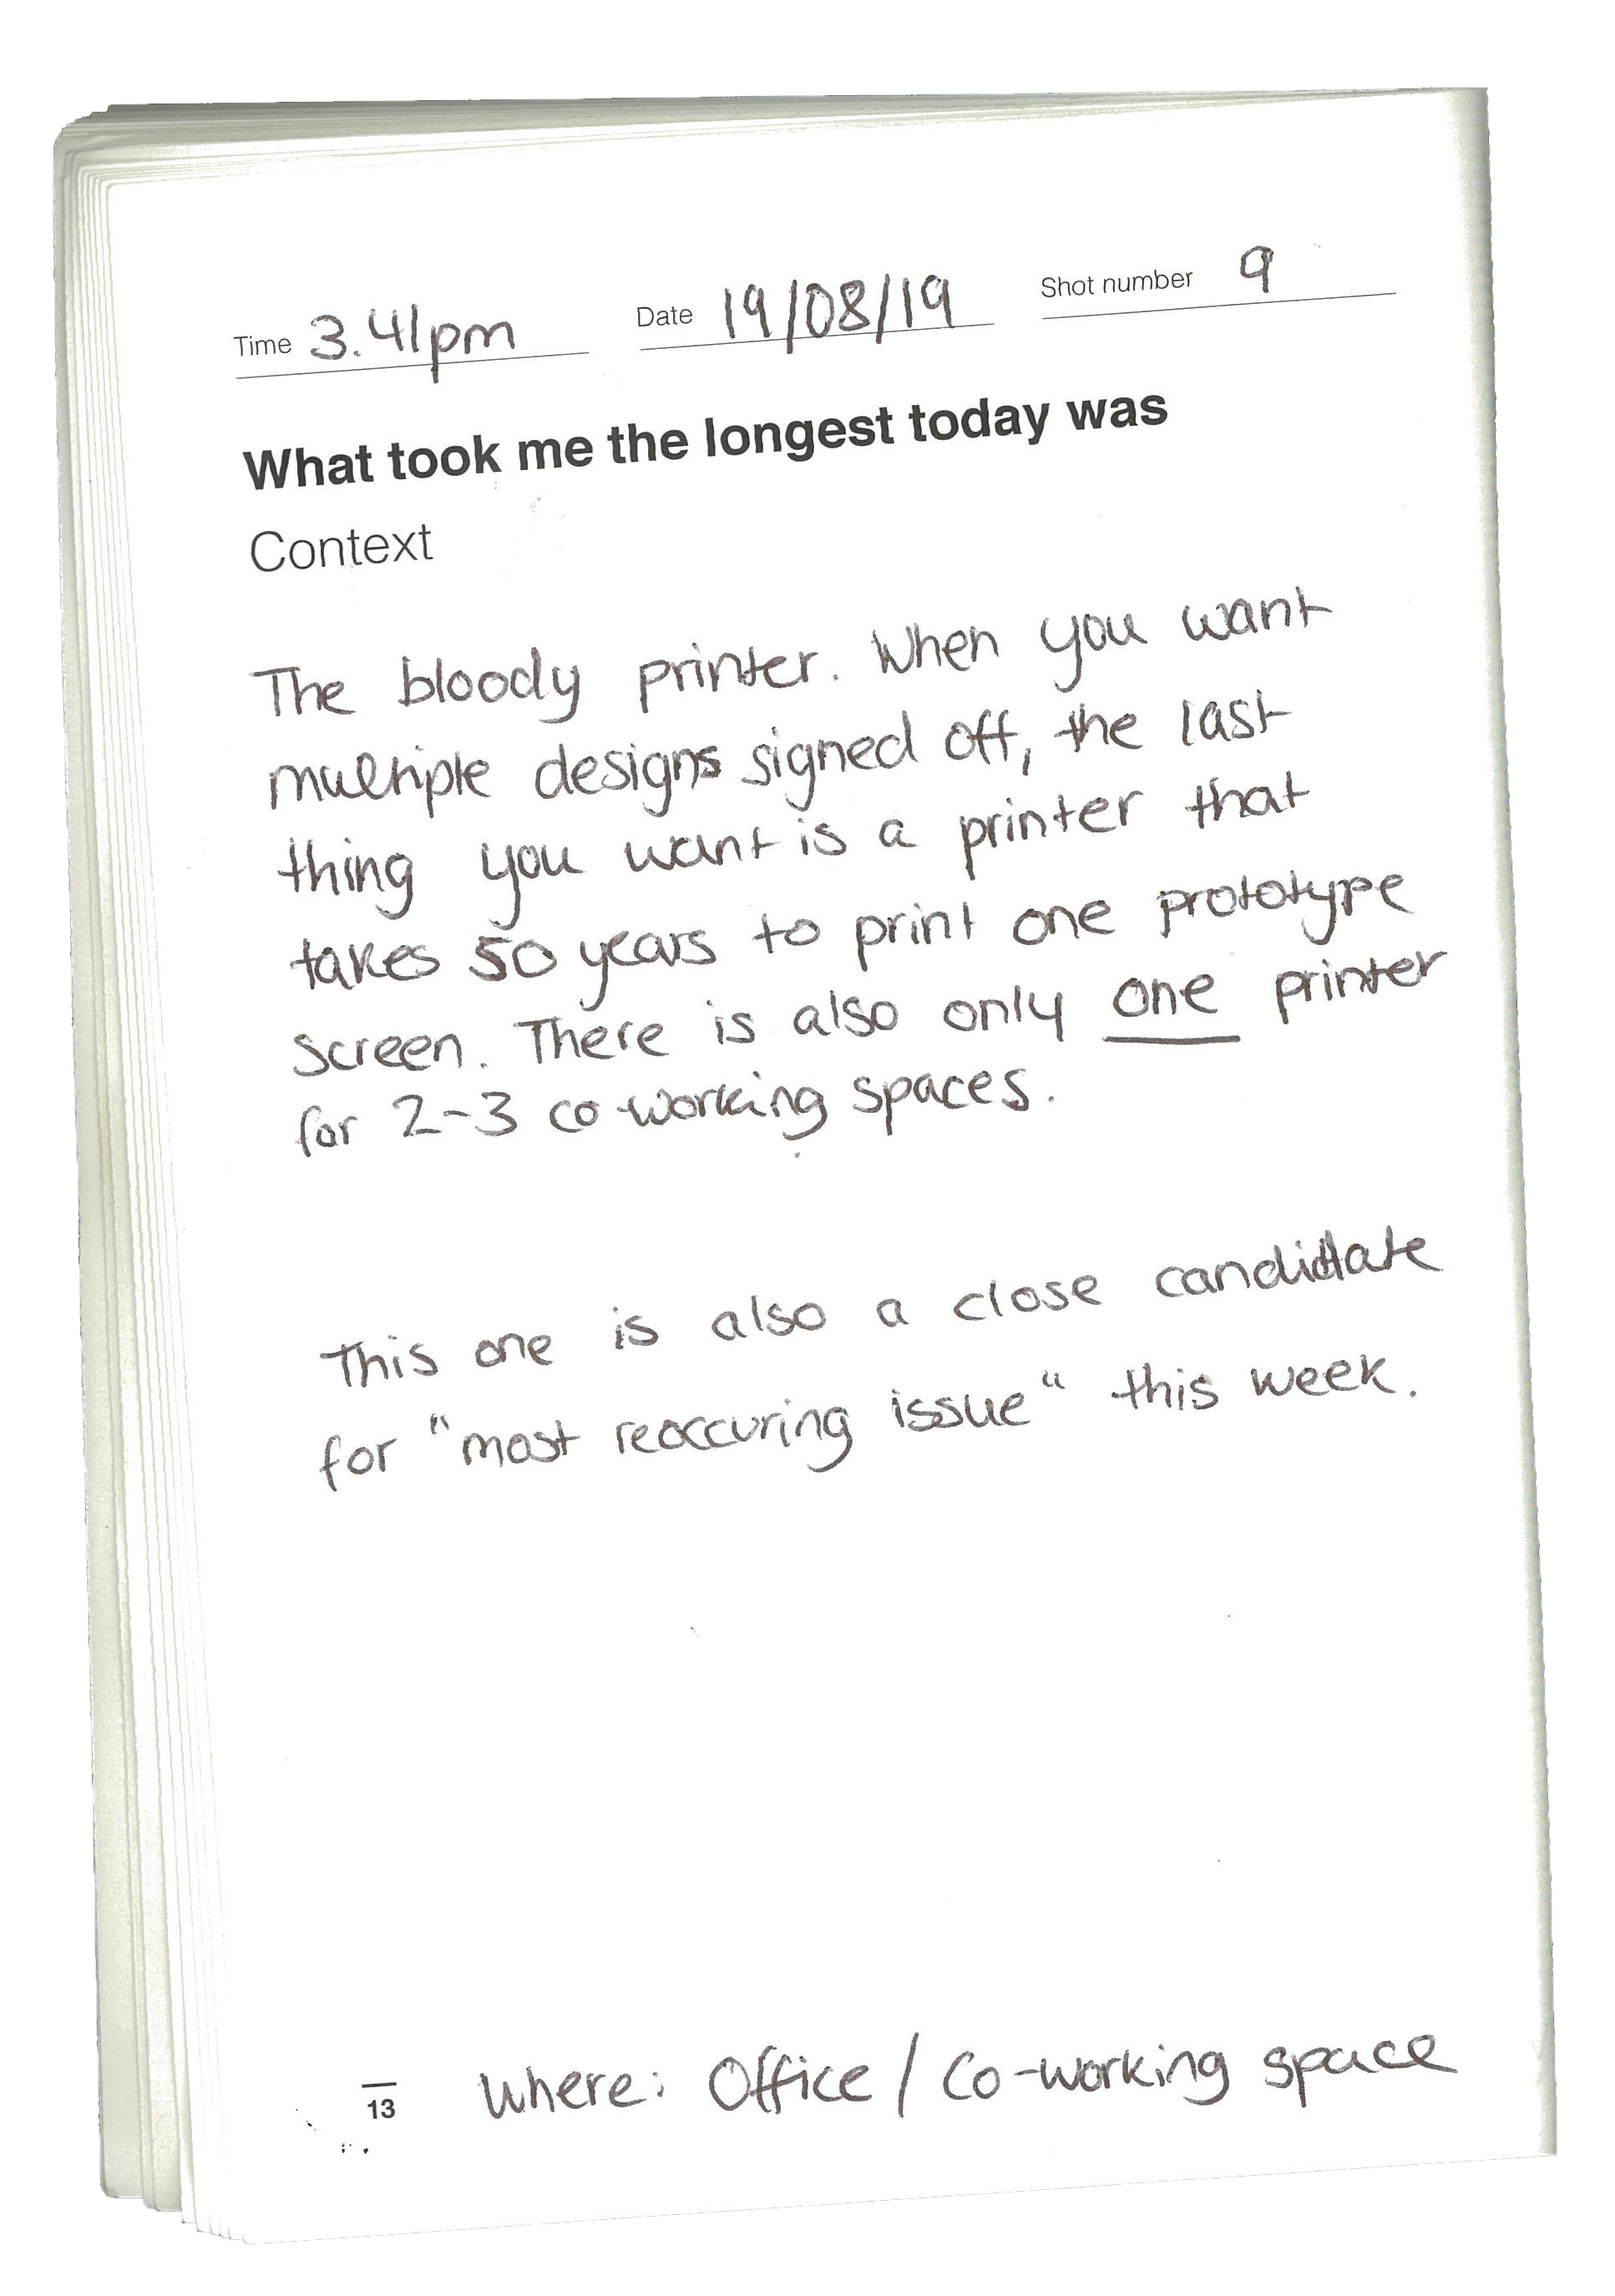 Time 3.41pm Date 19/08/19 Shot number 9
What took me the longest today was
Context
The bloody printer. When you want
multiple designs signed off, the last
thing you want is a printer that
takes 50 years to print one prototype
screen. There is also only one printer
for 2-3 co-working spaces.
This one is also a close candidate
for "most reoccuring issue" this week.
13 Where: Office / Co-working space